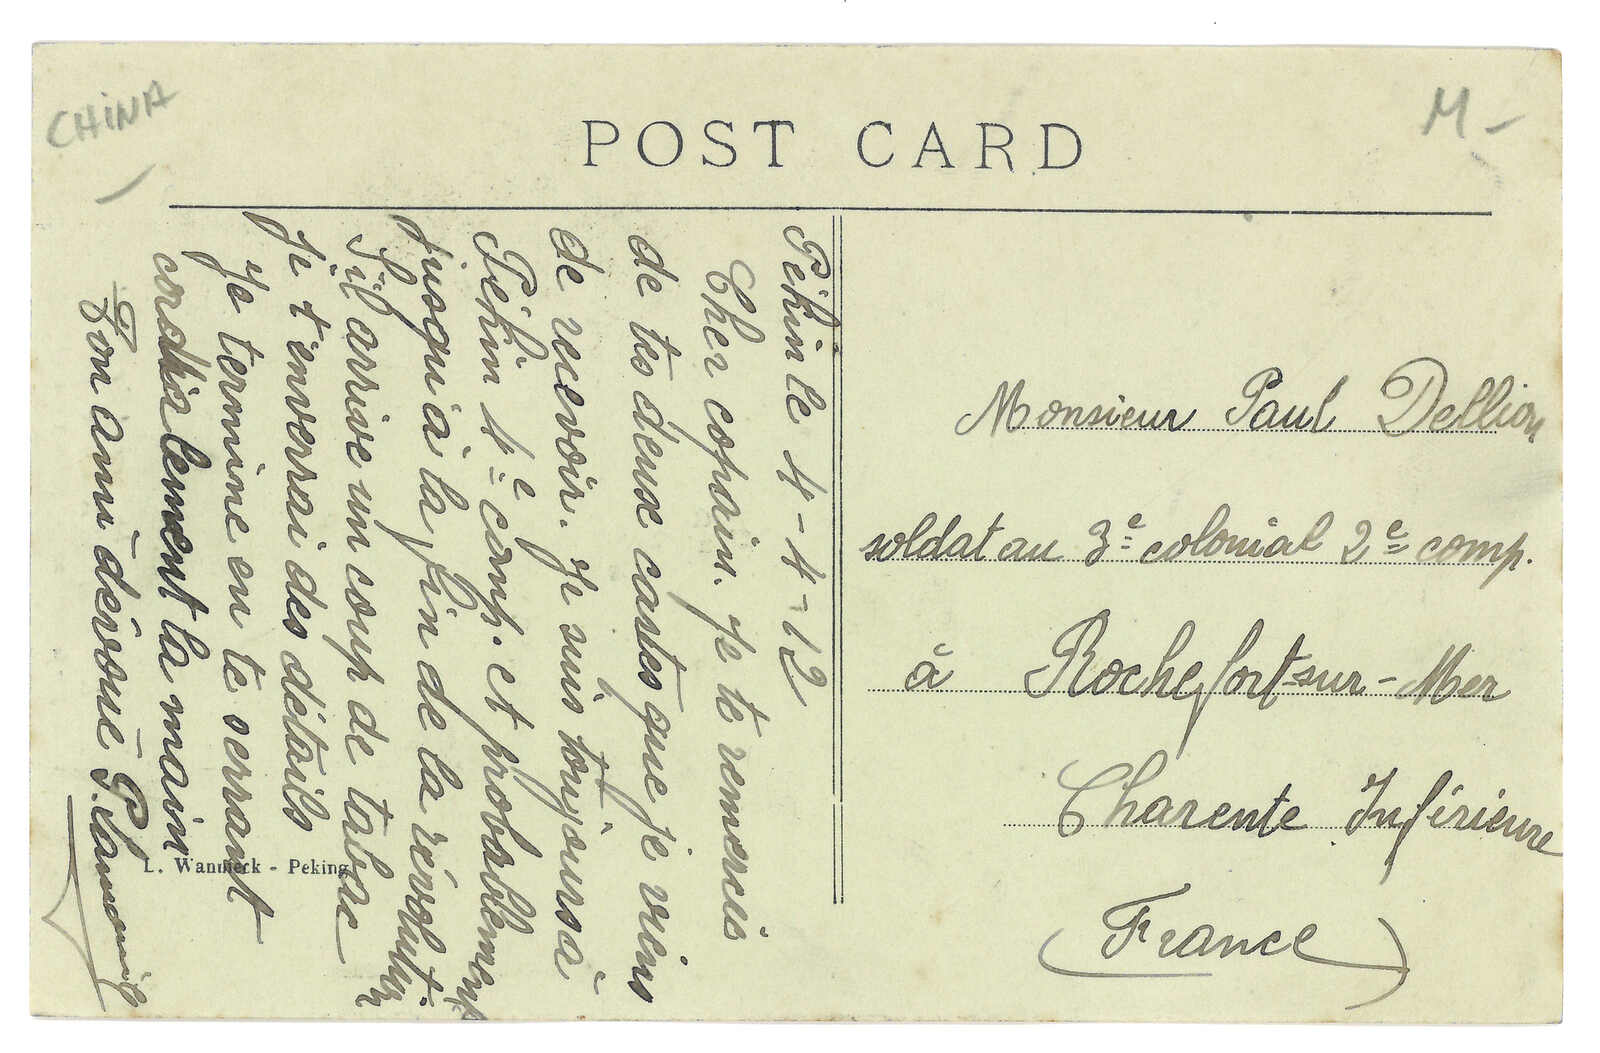 CHINA
M-
POST CARD
Pékin le 4-4-12
Cher copain. Je te remercie
de tes deux cartes que je viens
de recevoir. Je suis toujours à
Pékin 4e comp. et probablement
jusqu'à la fin de la révolution
S'il arrive un coup de tabac
Je t'enverrai des détails
Je termine en te serrant
cordialement la main
Ton ami dévoué P.
L. Wannieck - Peking
Monsieur Paul Dellion
soldat au 3e colonial 2e comp.
à Rochefort-sur-Mer
Charente Inférieure
(France)